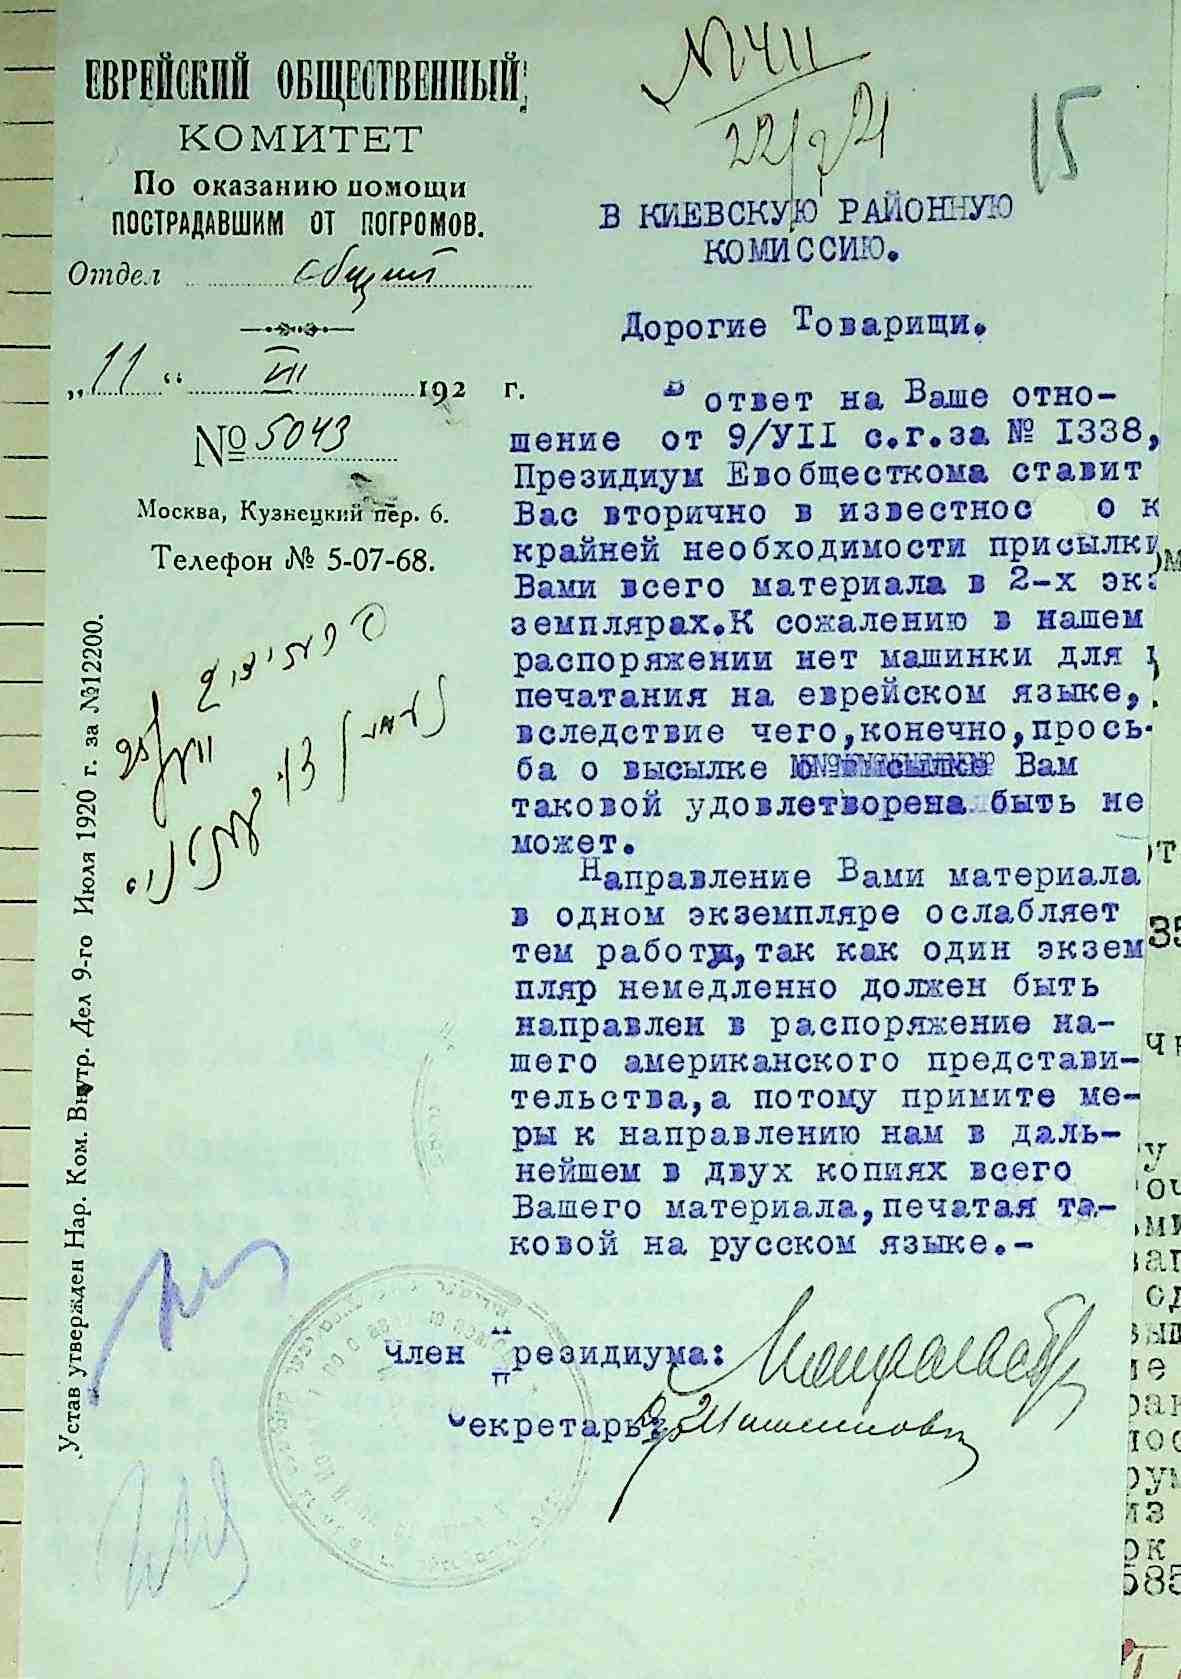 ЕВРЕЙСКИЙ ОБЩЕСТВЕННЫЙ
КОМИТЕТ
По оказанию помощи
ПОСТРАДАВШИМ ОТ ПОГРОМОВ.
Отдел общий
„11“ VII 192 г.
№ 5043
Москва, Кузнецкий пер. 6.
Телефон № 5-07-68.
Устав утвержден Нар. Ком. Внутр. Дел 9-го Июля 1920 г. за №12200.
25/VII
№1411
22/7 21
15
В КИЕВСКУЮ РАЙОННУЮ
КОМИССИЮ.
Дорогие Товарищи.
В ответ на Ваше отно-
шение от 9/УII с.г.за № 1338,
Президиум Евобщесткома ставит
Вас вторично в известнос о к
крайней необходимости присылки
Вами всего материала в 2-х экз
земплярах.К сожалению в нашем
распоряжении нет машинки для
печатания на еврейском языке,
вследствие чего,конечно,прось-
ба о высылке Вам
таковой удовлетворена быть не
может.
Направление Вами материала
в одном экземпляре ослабляет
тем работы,так как один экзем
пляр немедленно должен быть
направлен в распоряжение на-
шего американского представи-
тельства,а потому примите ме-
ры к направлению нам в даль-
нейшем в двух копиях всего
Вашего материала,печатая та-
ковой на русском языке.-
Член Президиума:
Секретарь: